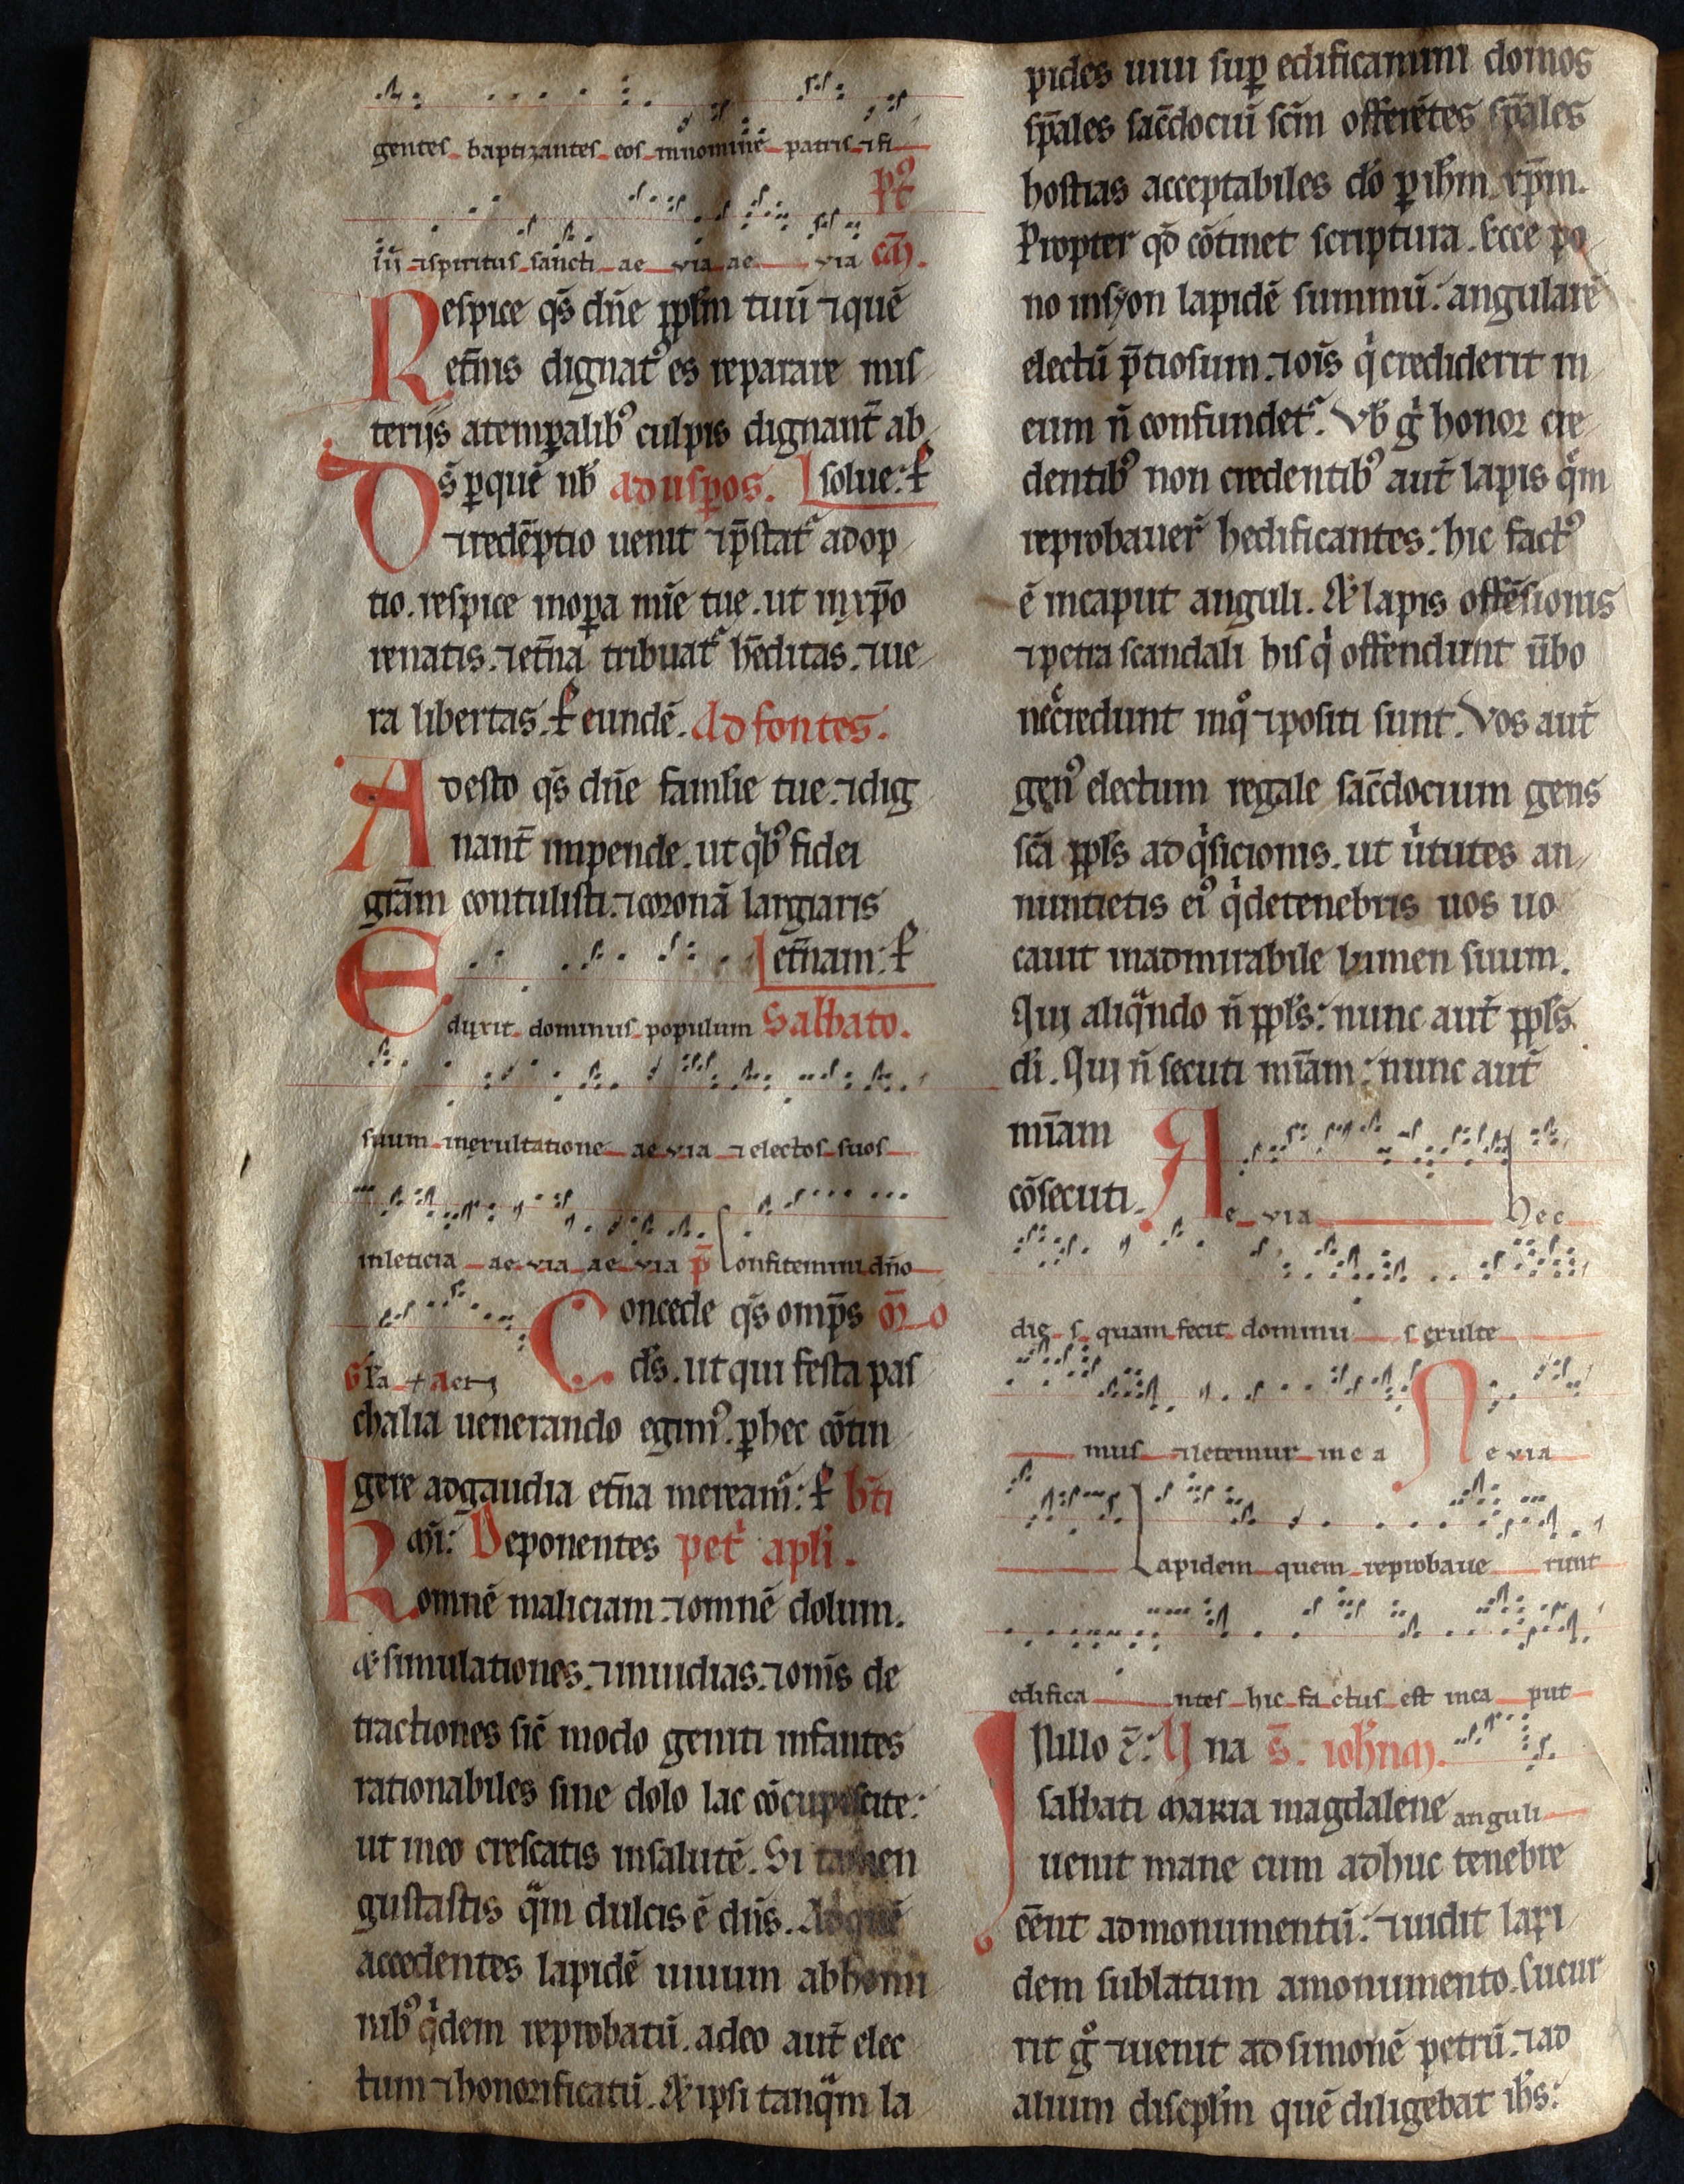 gentes baptizantes eos innomine patris ⁊ fi
lii ⁊ spiritus sancti ae via ae via Pꝰt cōm.
Respice qs̄ dn̄e pplm̄ tuū ⁊ quē
et̄nis dignatꝰ es reparare mis
teriis atemꝑalibꝰ culpis dignant̄ ab
Ds̄ ꝑquē nb̄ ad uspos. solue: ꝑ
⁊ redēptio uenit ⁊ p̄statᷣ adop
tio. respice inoꝑa mīe tue. ut in xp̄o
renatis. ⁊ et̄na tribuatᷣ h̄editas. ⁊ ue
ra libertas. ꝑ eundē. Ad fontes.
Adesto qs̄ dn̄e familie tue. ⁊ dig
nant̄ impende. ut qͥbꝰ fidei
grām contulisti. ⁊ coronā largiaris
et̄nam: ꝑ
Eduxit dominus populum Sabbato.
suum inexultatione ae via ⁊ electos suos
inleticia ae via ae via p̄ Confitemini dn̄o
Concede qs̄ omp̄s
Gͣ
ds̄. ut qui festa pas
chalia uenerando egimꝰ. ꝑ hec cōtin
gere adgaudia et̄na mereamᷣ: ꝑ bt̄i
Kmi: Deponentes petͥ apl̄i.
omnē maliciam. ⁊ omnē dolum.
& simulationes. ⁊ inuidias. ⁊ om̄s de
tractiones sic̄ modo geniti infantes
rationabiles sine dolo lac cōcupiscite:
ut ineo crescatis insalutē. Si tamen
gustastis qͣm dulcis ē dn̄s. Adquē
accedentes lapidē uiuum abhomi
nibꝰ qͥdem reprobatū. adeo aut̄ elec
tum ⁊ honorificatū. & ipsi tanqͣm la
pides uiui suꝑ edificamini domos
sp̄ales sac̄dociū sc̄m offerētes sp̄ales
hostias acceptabiles dō ꝑ ihm̄ xp̄m.
Propter qd̄ cōtinet scriptura. Ecce po
no insyon lapidē summū: angularē
electū p̄tiosum. ⁊ oīs qͥ crediderit in
eum n̄ confundetᷣ. Vb̄ gͥ honor cre
dentibꝰ non credentibꝰ aut̄ lapis qͤm
reprobauer̄ hedificantes: hic factꝰ
ē incaput anguli. & lapis offēsionis
⁊ petra scandali his qͥ offendunt ūbo
nec̄ credunt inqͦ ⁊ positi sunt. Vos aut̄
genꝰ electum regale sac̄docium gens
sc̄a ppl̄s adqͥsicionis. ut uͥtutes an
nuntietis eiꝰ qͥ detenebris uos uo
cauit inadmirabile lumen suum.
Qui aliqͣndo n̄ ppl̄s: nunc aut̄ ppl̄s
di. Qui n̄ secuti mīam: nunc aut̄
mīam
cōsecuti. Ae via Hec
dies quam fecit dominus exulte
mus ⁊ letemur in ea Ae via
Lapidem quem reprobaue runt
edifica ntes hic factus est inca put
Inillo t̄: Una s̄. ioh̄nm.
sabbati maria magdalene anguli
uenit mane cum adhuc tenebre
eēnt admonumentū: ⁊ uidit lapi
dem sublatum amonumento. Cucur
rit gͦ ⁊ uenit ad simonē petrū. ⁊ ad
alium discplm̄ quē diligebat ihs̄: